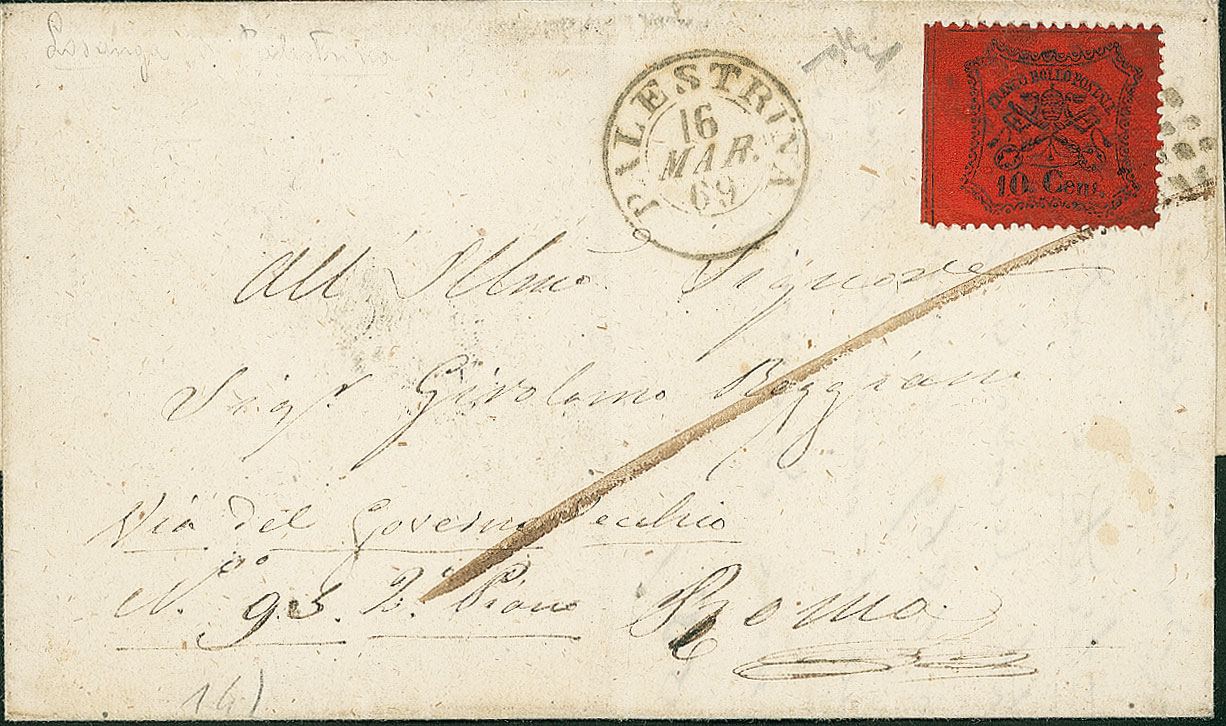 Losanga Palestrina
PALESTRINA
16
MAR.
69
FRANCO BOLLO POSTALE
10. Cent.
All' Illmo. Signore
Sigr. Girolamo Reggiani
Via del Governo Vecchio
No. 93. 2o. Piano Roma